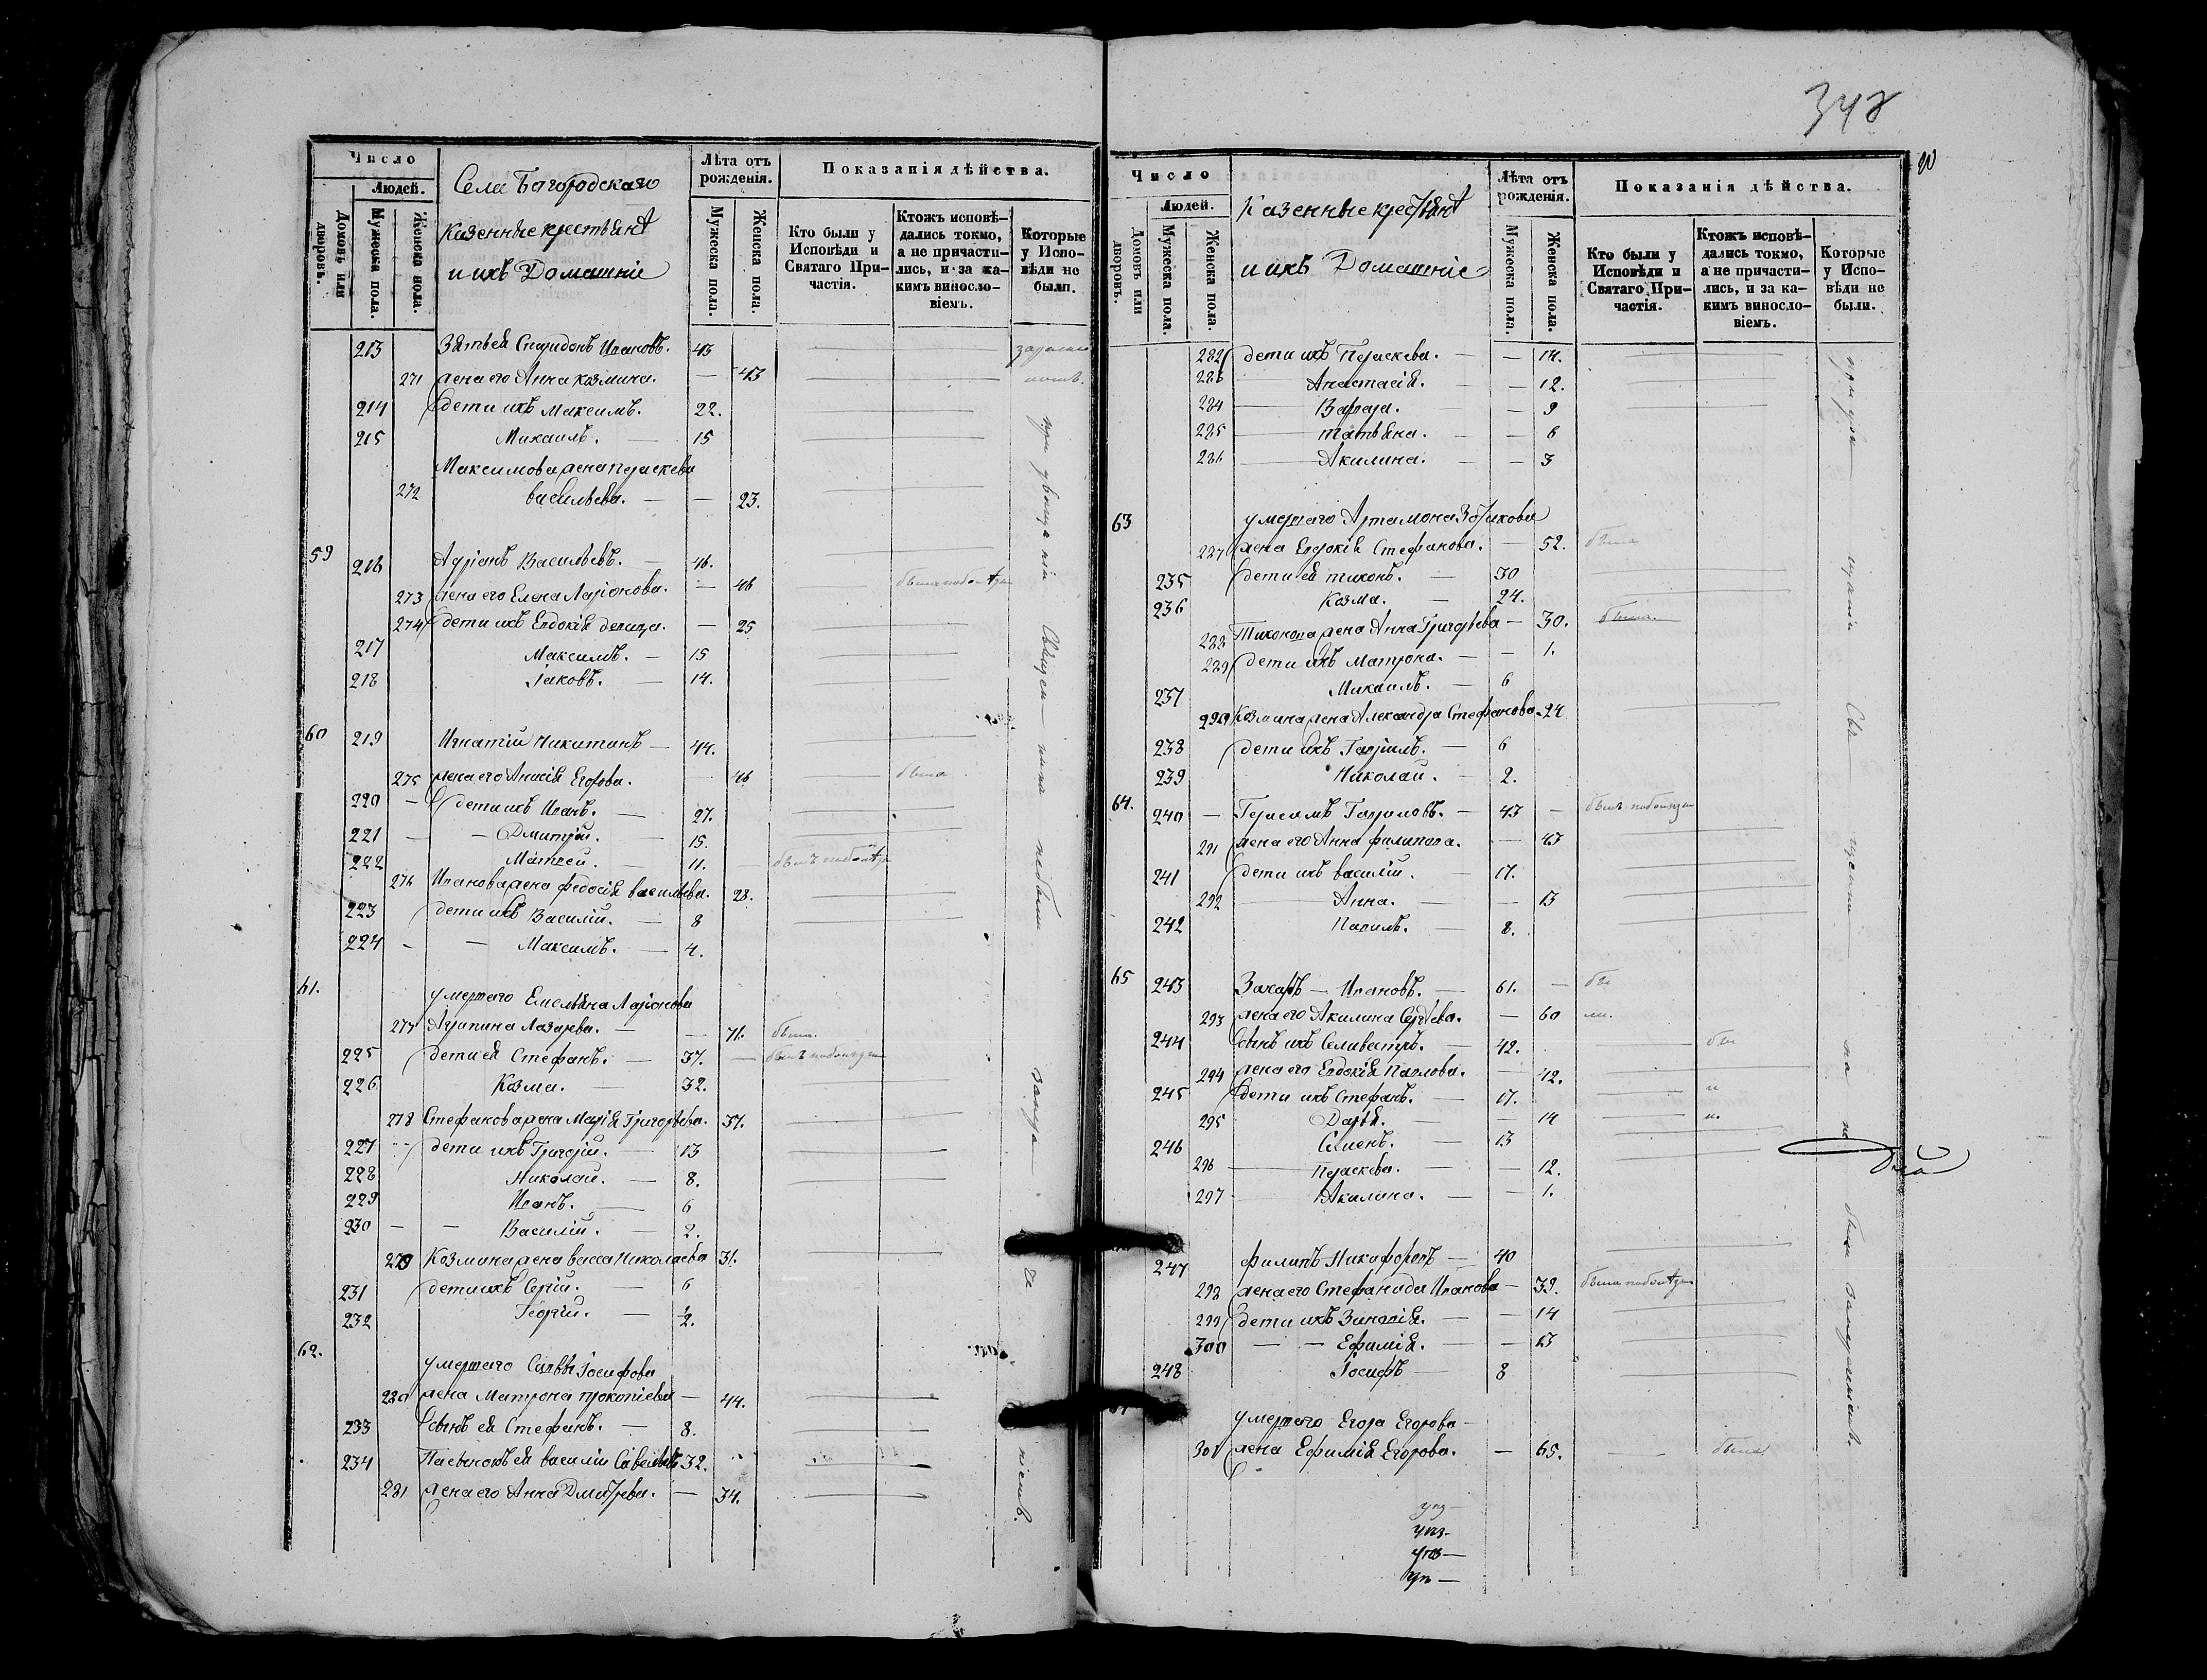 Число
Людей.
Домовъ или дворовъ.
Мужеска пола.
Женска пола.
Села Богородскаго
Казенные крестьянѣ
и ихъ Домашніе
Лѣта отъ рожденія.
Мужеска пола.
Женска пола.
Показанія дѣйства.
Кто были у Исповѣди и Святаго Причастія.
Ктожъ исповѣдались токмо, а не причастились, и за какимъ винословіемъ.
Которые у Исповѣди не были.
213 Зять ея Спиридонъ Ивановъ. 43
271 жена его Анна Козмина. — 43
214 дети ихъ Максимъ. 22.
215 Михаилъ. — 15
Максимова жена Параскева
272 васильева. — — 23.
59 216 Адріанъ Васильевъ. — 46.
273 жена его Елена Ларіонова. — 46
274 дети ихъ Евдокія девица. — 25
217 Максимъ. — 15
218 Іаковъ. — 14.
60 219 Игнатій Никитинъ — 44.
275 жена его Анисія Егорова. — 46 была
220 — дети ихъ Иванъ. — 27.
221 — — Дмитрій. — 15.
222 Матвей. — 11.
276 Иванова жена федосія васильева. 28.
223 дети ихъ Василій. — 8
224 - — Максимъ. — 4.
61. умершаго Емельяна Ларіонова
277 Агрипина Лазарева. — — 71. была.
225 дети ея Стефанъ. — 37.
226 Козма. — 32.
278 Стефанова жена Марія Григорьева. 37.
227 дети ихъ Григорій. — 13
228 Николай. — 8.
229 Иванъ. — 6
230 — — Василій. — 2.
279 Козмина жена васса Николаева 31.
231 дети ихъ Сергій. — 6
232 Георгій. — ½.
62. умершаго Саввы Іосифова
280 жена Матрона прокопіева — 44.
233 сынъ ея Стефанъ. — 8.
234 Пасынокъ ея василій Савельевъ 32.
281 жена его Анна Дмитрева. — 34.
348
Число
Людей.
Домовъ или дворовъ.
Мужеска пола.
Женска пола.
Казенные крестьянѣ
и ихъ Домашніе
Лѣта отъ рожденія.
Мужеска пола.
Женска пола.
Показанія дѣйства.
Кто были у Исповѣди и Святаго Причастія.
Ктожъ исповѣдались токмо, а не причастились, и за какимъ винословіемъ.
Которые у Исповѣди не были.
282 дети ихъ Параскева. — — 14.
283 Анастасія. — — 12.
284 — Варвара. — — 9
285 — татьяна. — — 6
286 — Акилина. — — 3
63 умершаго Артамона
287 жена Евдокія Стефанова. — 52. была
235 дети ея тихонъ. — 30
236 Козма. — 24.
288 Тихонова жена Анна Григорьева — 30. была.
289 дети ихъ Матрона. — — 1.
237 Михаилъ. — 6
290 Козмина жена Александра Стефанова - 24
238 дети ихъ Гавріилъ. — 6
239 Николай. — 2.
64. 240 — Герасимъ Гавриловъ. — 43 —
291 жена его Анна филипова. — 43
241 дети ихъ василій. — 17.
292 — Анна. — — 13
242 Павилъ. — 8.
65 243 Захаръ — Ивановъ. — 61. —
293 жена его Акилина Сергѣева. — 60
244 сынъ ихъ Селивестръ. — 42.
294 жена его Евдокія Павлова. — 42.
245 дети ихъ Стефанъ. — 17.
295 Дарья. — 14
246 Семенъ. — 13
296 — Параскева. — — 12.
297 Акилина. — — 1.
247 филипъ Никифоровъ — 40
298 жена его Стефанида Иванова — 39.
299 дети ихъ Зиновія. — — 14
300 — — Ефимія. — — 13
248 Іосифъ — 8
умершаго Егора Егорова —
301 жена Ефимія Егорова. — — 65. — была